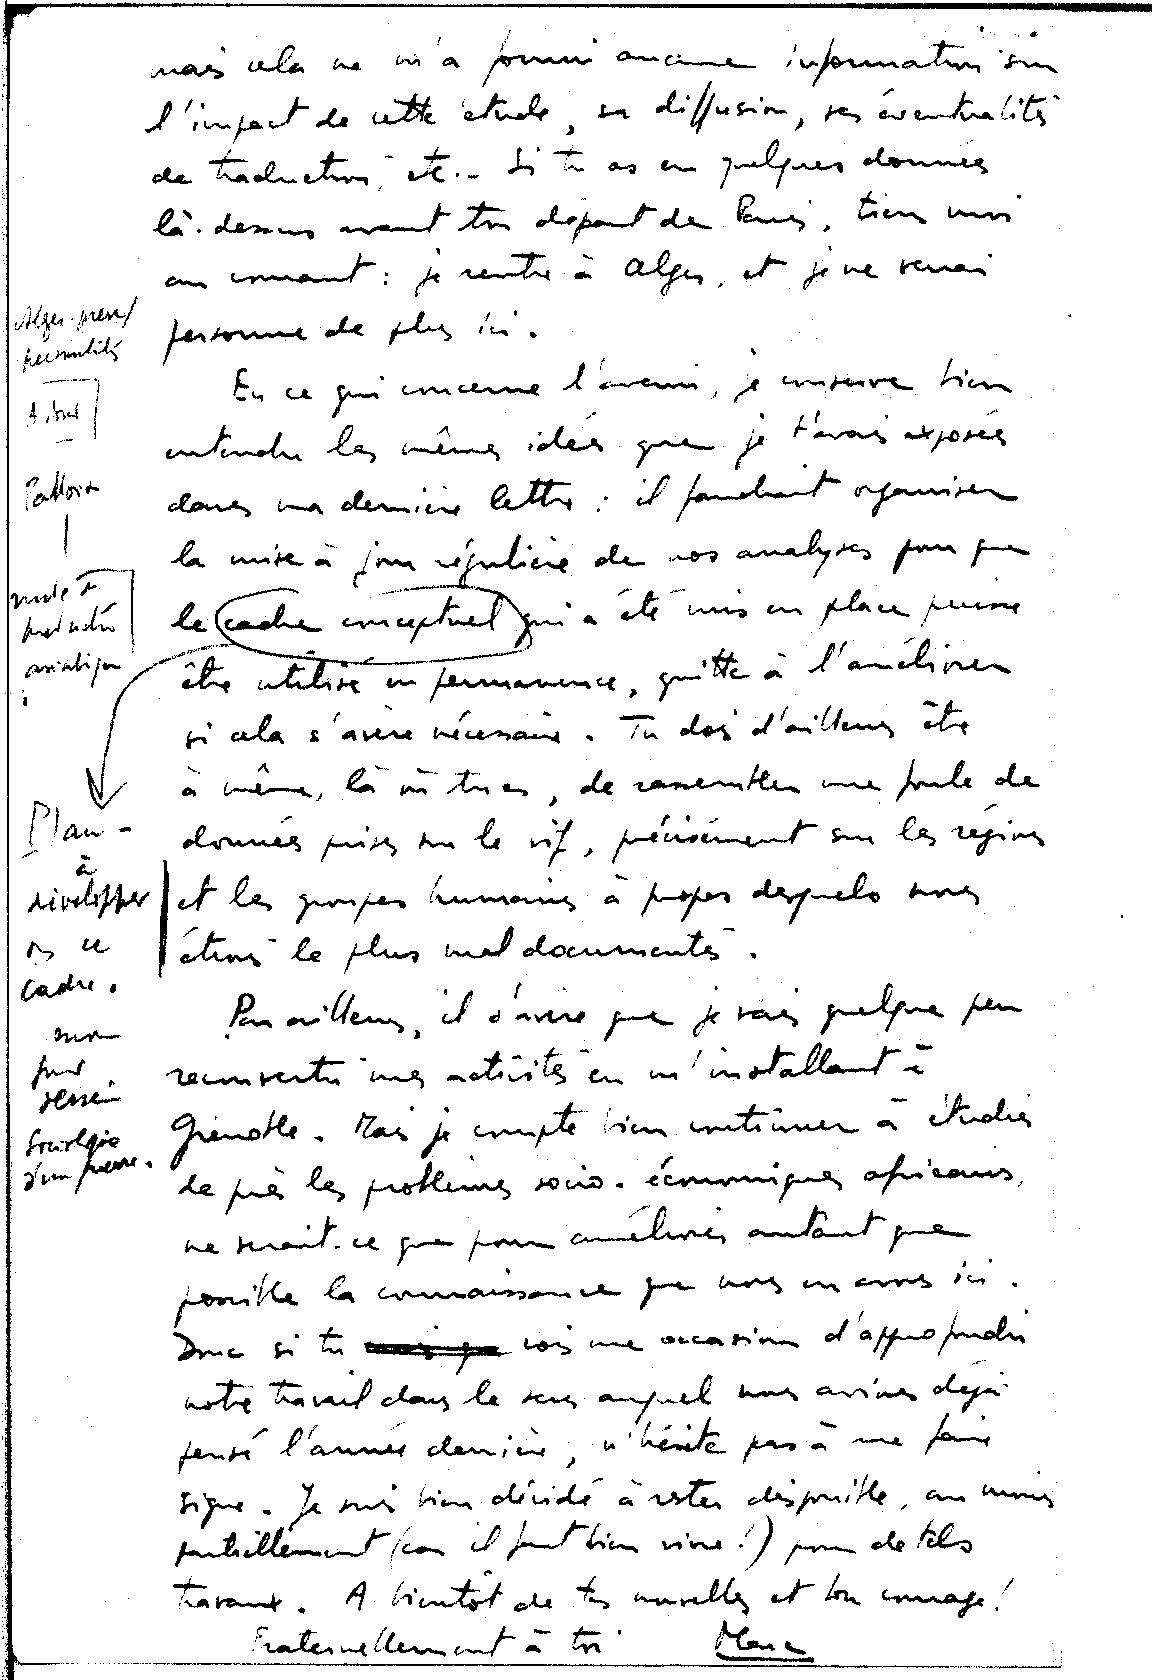 mais cela ne m'a fourni aucune information sur
l'impact de cette étude, sa diffusion, ses éventualités
de traduction, etc.. Si tu as eu quelques données
là-dessus avant ton départ de Paris, tiens moi
au courant : je rentre à Alger, et je ne verrai
personne de plus ici.
En ce qui concerne l'avenir, je conserve bien
entendu les mêmes idées que je t'avais exposées
dans ma dernière lettre : il faudrait organiser
la mise à jour régulière de nos analyses pour que
le cadre conceptuel qui a été mis en place puisse
être utilisé en permanence, quitte à l'améliorer
si cela s'avère nécessaire. Tu dois d'ailleurs être
à même, là où tu es, de rassembler une foule de
données prises sur le vif, précisément sur les régions
et les groupes humains à propos desquels nous
étions le plus mal documentés.
Par ailleurs, il s'avère que je vais quelque peu
reconvertir mes activités en m'installant à
Grenoble. Mais je compte bien continuer à étudier
de près les problèmes socio-économiques africains,
ne serait-ce que pour améliorer autant que
possible la connaissance que nous en avons ici.
Donc si tu vois une occasion d'approfondir
notre travail dans le sens auquel nous avions déjà
pensé l'année dernière, n'hésite pas à me faire
signe. Je suis bien décidé à rester disponible, au moins
partiellement (car il faut bien vivre!) pour de tels
travaux. A bientôt de tes nouvelles et bon courage!
Fraternellement à toi Marc
Alger
mode de
production
asiatique
Plan -
à
développer
ce
cadre.
Sociologie
d'un